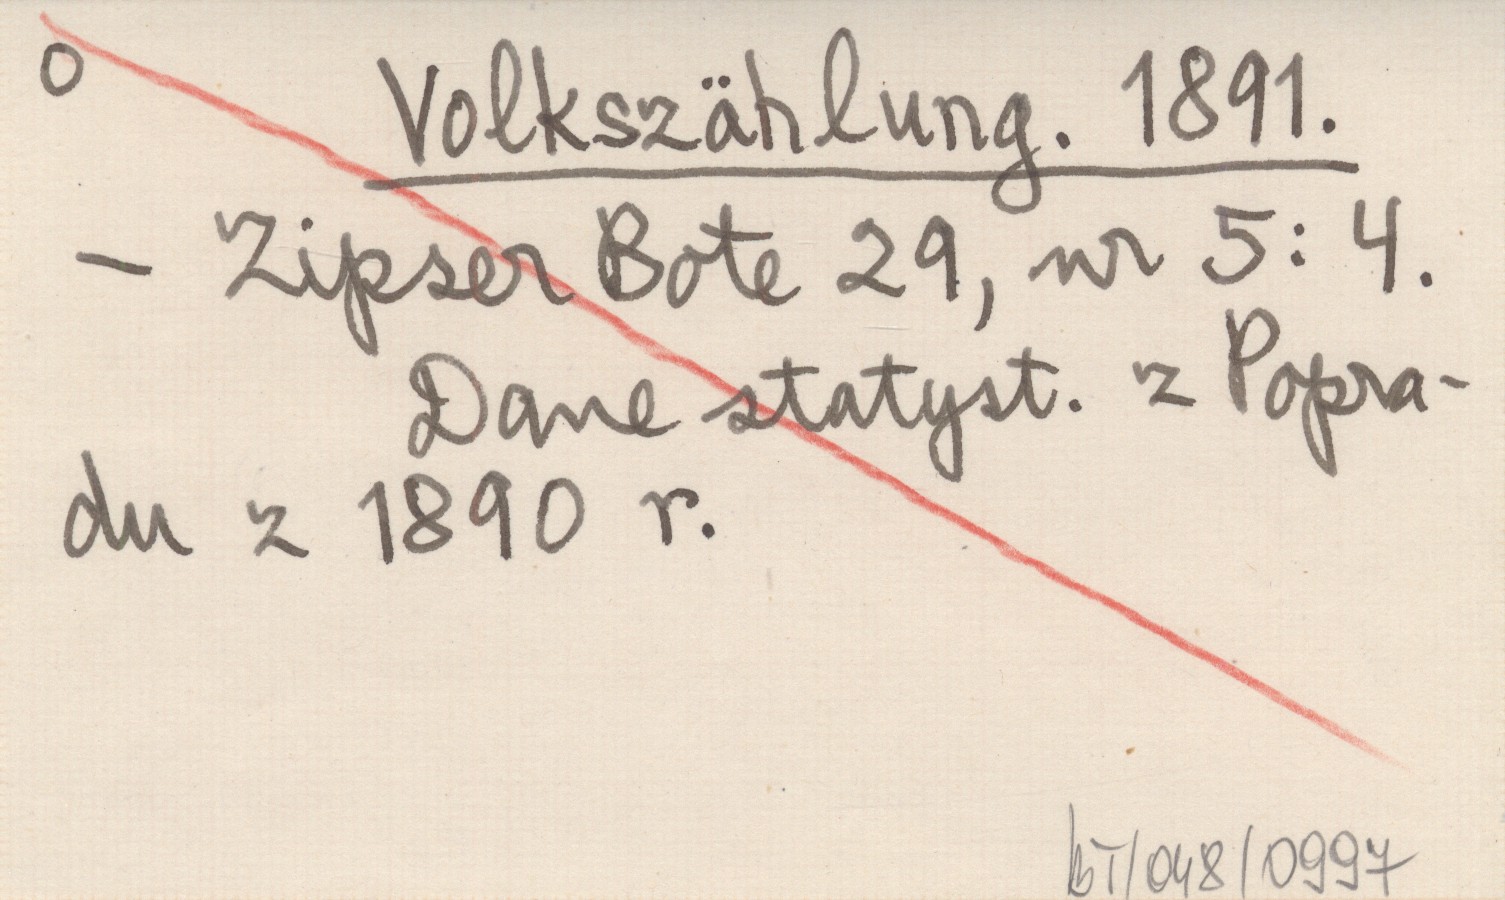 o
Volkszählung. 1891.
- Zipser Bote 29, nr 5: 4.
Dane statyst. z Popra-
du z 1890 r.
bT/048/0997